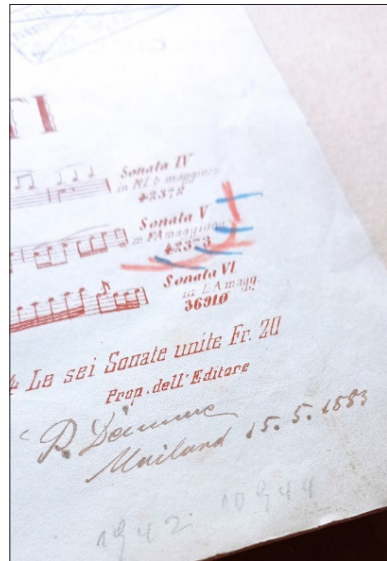 TI
Sonata IV
in MI b maggiore
42372
Sonata V
in FA maggiore
42373
Sonata VI
in LA magg.
36910
Le sei Sonate unite Fr. 20
Prop. dell'Editore
Mailand 15.5.1883
1942